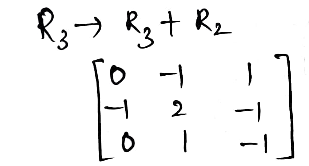 R₃ → R₃ + R₂
0 -1 1
-1 2 -1
0 1 -1